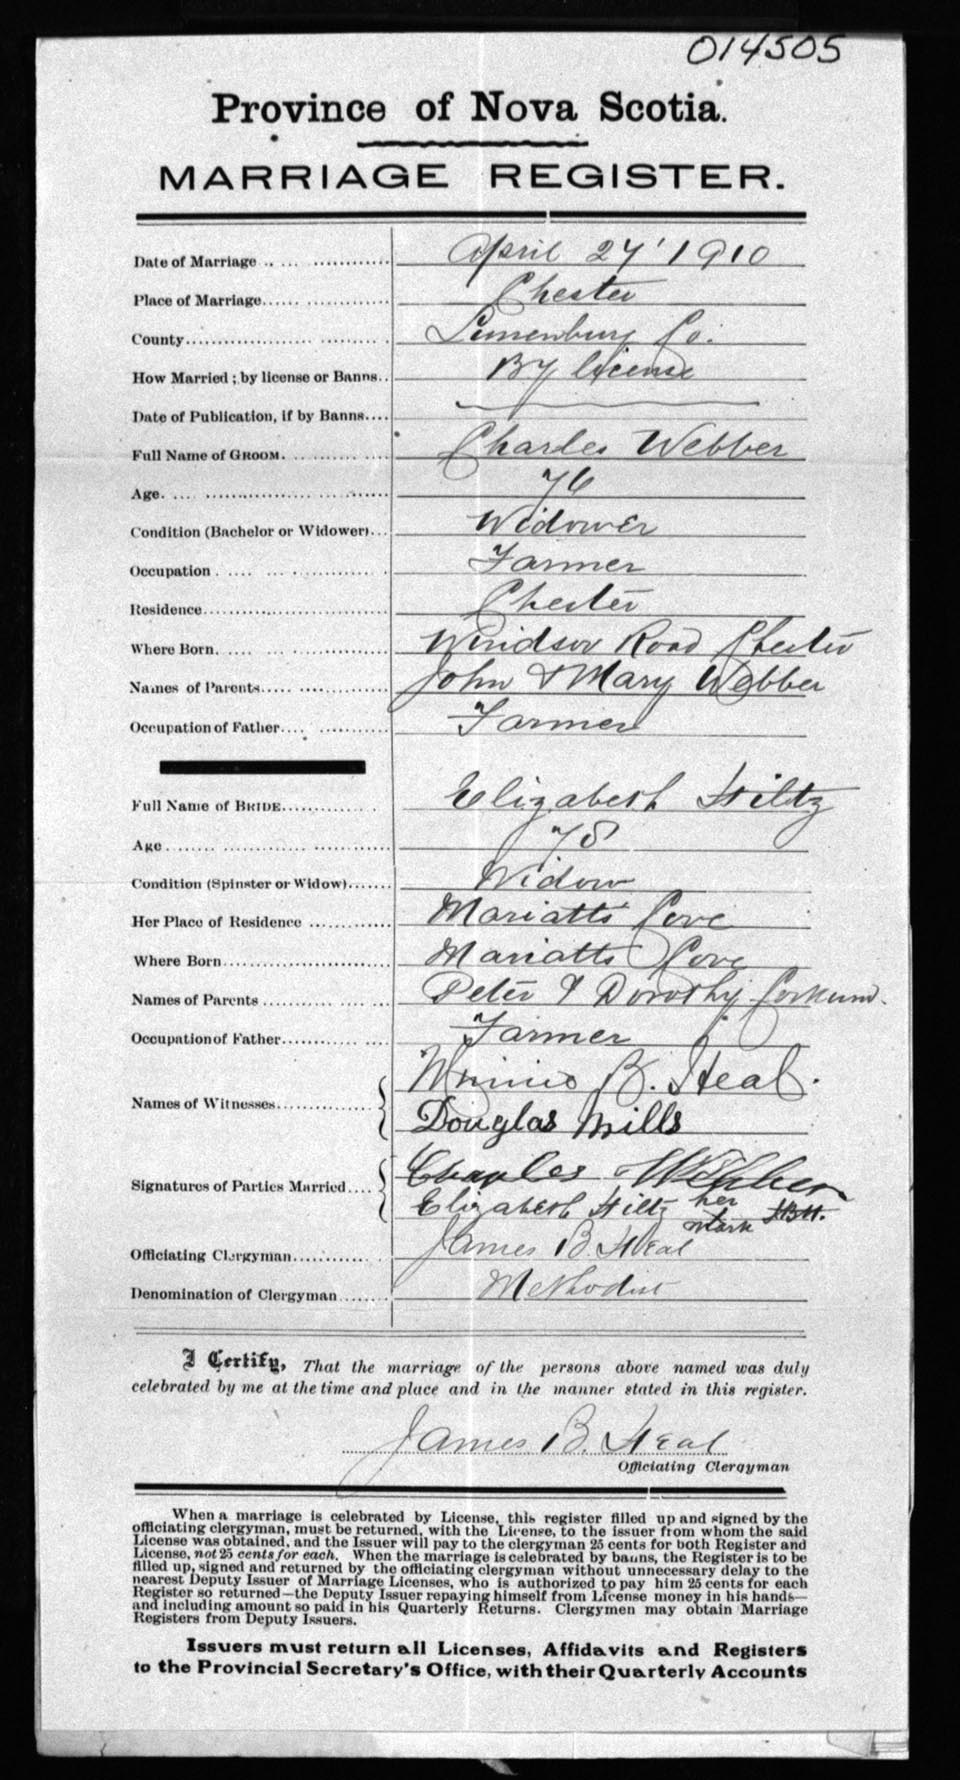 014505
Province of Nova Scotia.
MARRIAGE REGISTER.
Date of Marriage April 27' 1910
Place of Marriage Chester
County Lunenburg Co.
How Married; by license or Banns By license
Date of Publication, if by Banns
Full Name of GROOM. Charles Webber
Age. 76
Condition (Bachelor or Widower) Widower
Occupation Farmer
Residence Chester
Where Born. Windsor Road Chester
Names of Parents John & Mary Webber
Occupation of Father Farmer
Full Name of BRIDE Elizabeth Hiltz
Age 78
Condition (Spinster or Widow) Widow
Her Place of Residence Mariatts Cove
Where Born Mariatts Cove
Names of Parents Peter & Dorothy Corkum.
Occupation of Father Farmer
Names of Witnesses B. Heal.
Douglas Mills
Signatures of Parties Married Charles Webber
Elizabeth Hiltz her mark JBH.
Officiating Clergyman James B. Heal
Denomination of Clergyman Methodist
I Certify, That the marriage of the persons above named was duly
celebrated by me at the time and place and in the manner stated in this register.
James B. Heal
Officiating Clergyman
When a marriage is celebrated by License, this register filled up and signed by the
officiating clergyman, must be returned, with the License, to the issuer from whom the said
License was obtained, and the Issuer will pay to the clergyman 25 cents for both Register and
License, not 25 cents for each. When the marriage is celebrated by banns, the Register is to be
filled up, signed and returned by the officiating clergyman without unnecessary delay to the
nearest Deputy Issuer of Marriage Licenses, who is authorized to pay him 25 cents for each
Register so returned—the Deputy Issuer repaying himself from License money in his hands—
and including amount so paid in his Quarterly Returns. Clergymen may obtain Marriage
Registers from Deputy Issuers.
Issuers must return all Licenses, Affidavits and Registers
to the Provincial Secretary's Office, with their Quarterly Accounts